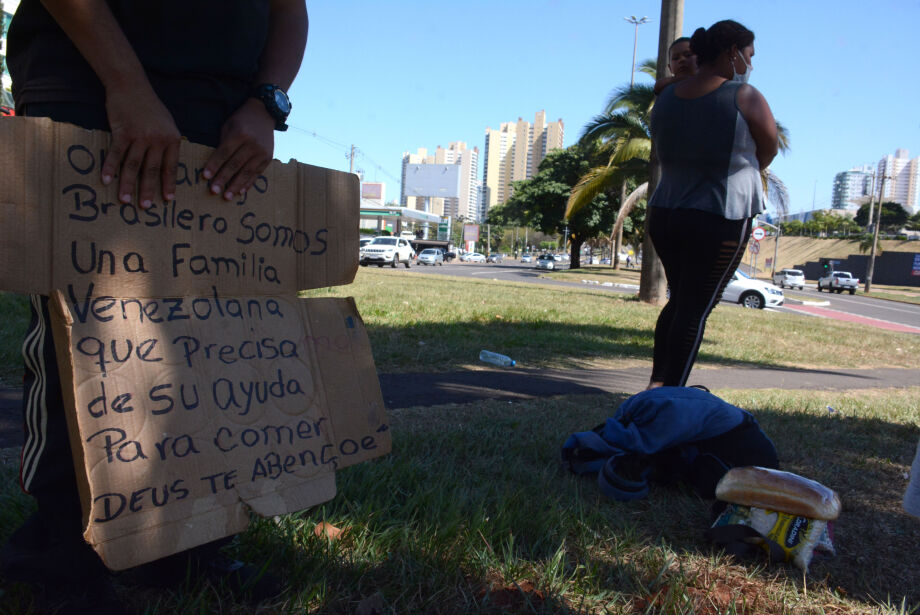 Brasilero Somos
Una Familia
Venezolana
que Precisa
de su Ayuda
Para comer
DEUS TE ABENÇOE